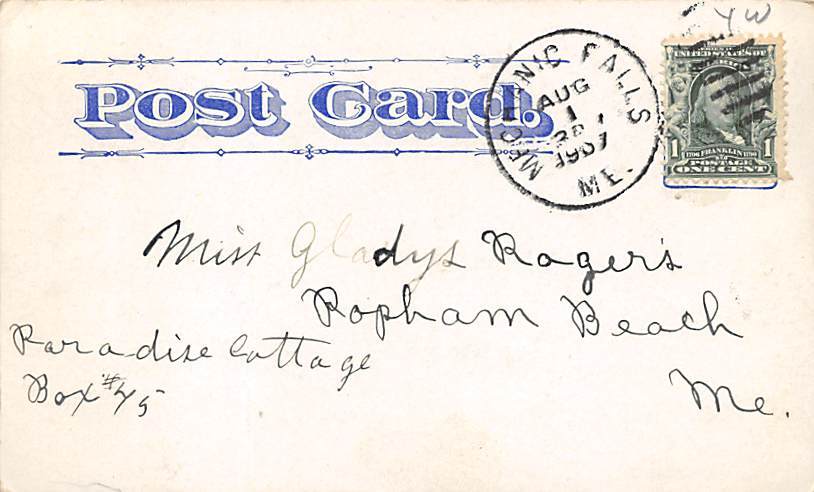 YW
Post Card.
MECHANIC FALLS
AUG
1
1907
ME.
SERIES OF
UNITED STATES OF
AMERICA
1 1706 FRANKLIN 1790 1
POSTAGE
ONE CENT
Miss Gladys Roger's
Popham Beach
Me.
Paradise Cottage
Box #45